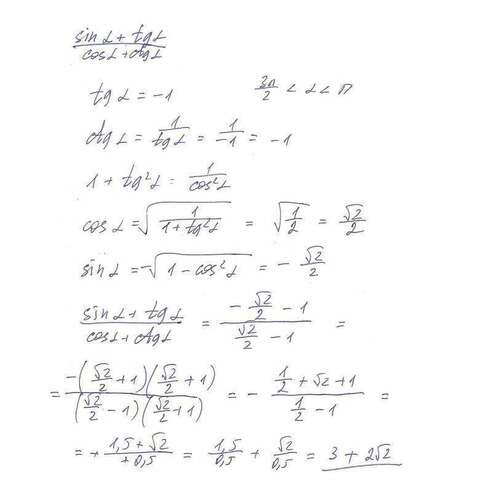 sinα + tgα / cosα + ctgα
tgα = -1    3π/2 < α < π
ctgα = 1/tgα = 1/-1 = -1
1 + tg²α = 1/cos²α
cosα = √(1/(1 + tg²α)) = √(1/2) = √2/2
sinα = -√(1 - cos²α) = - √2/2
sinα + tgα / cosα + ctgα = (- √2/2 - 1)/(√2/2 - 1) =
= -(√2/2 + 1)(√2/2 + 1) / (√2/2 - 1)(√2/2 + 1) = - (1/2 + √2 + 1)/(1/2 - 1) =
= + (1,5 + √2)/(+ 0,5) = 1,5/0,5 + √2/0,5 = 3 + 2√2